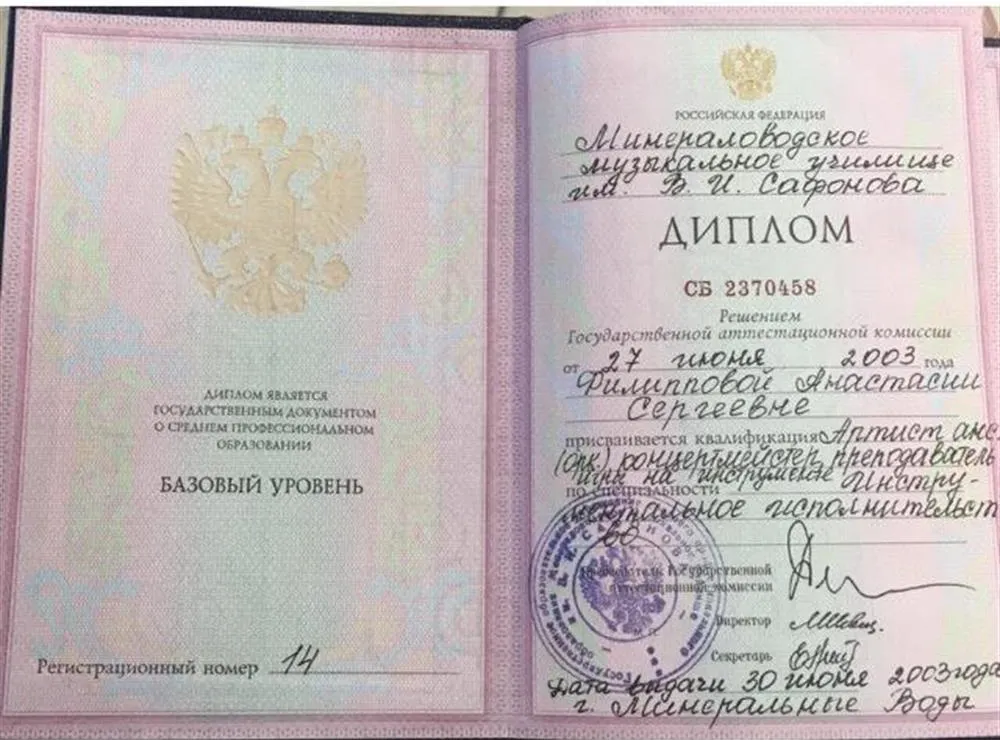 ДИПЛОМ ЯВЛЯЕТСЯ
ГОСУДАРСТВЕННЫМ ДОКУМЕНТОМ
О СРЕДНЕМ ПРОФЕССИОНАЛЬНОМ
ОБРАЗОВАНИИ
БАЗОВЫЙ УРОВЕНЬ
Регистрационный номер 14
РОССИЙСКАЯ ФЕДЕРАЦИЯ
Минераловодское
музыкальное училище
им. В. И. Сафонова
ДИПЛОМ
СБ 2370458
Решением
Государственной аттестационной комиссии
от 27 июня 2003 года
Филипповой Анастасии
Сергеевне
присваивается квалификация Артист анс.
(орк.) концертмейстер, преподаватель
игры на инструменте Инстру-
по специальности
ментальное исполнительст
во
Председатель Государственной
аттестационной комиссии
Директор
Секретарь
Дата выдачи 30 июня 2003 года
г. Минеральные Воды